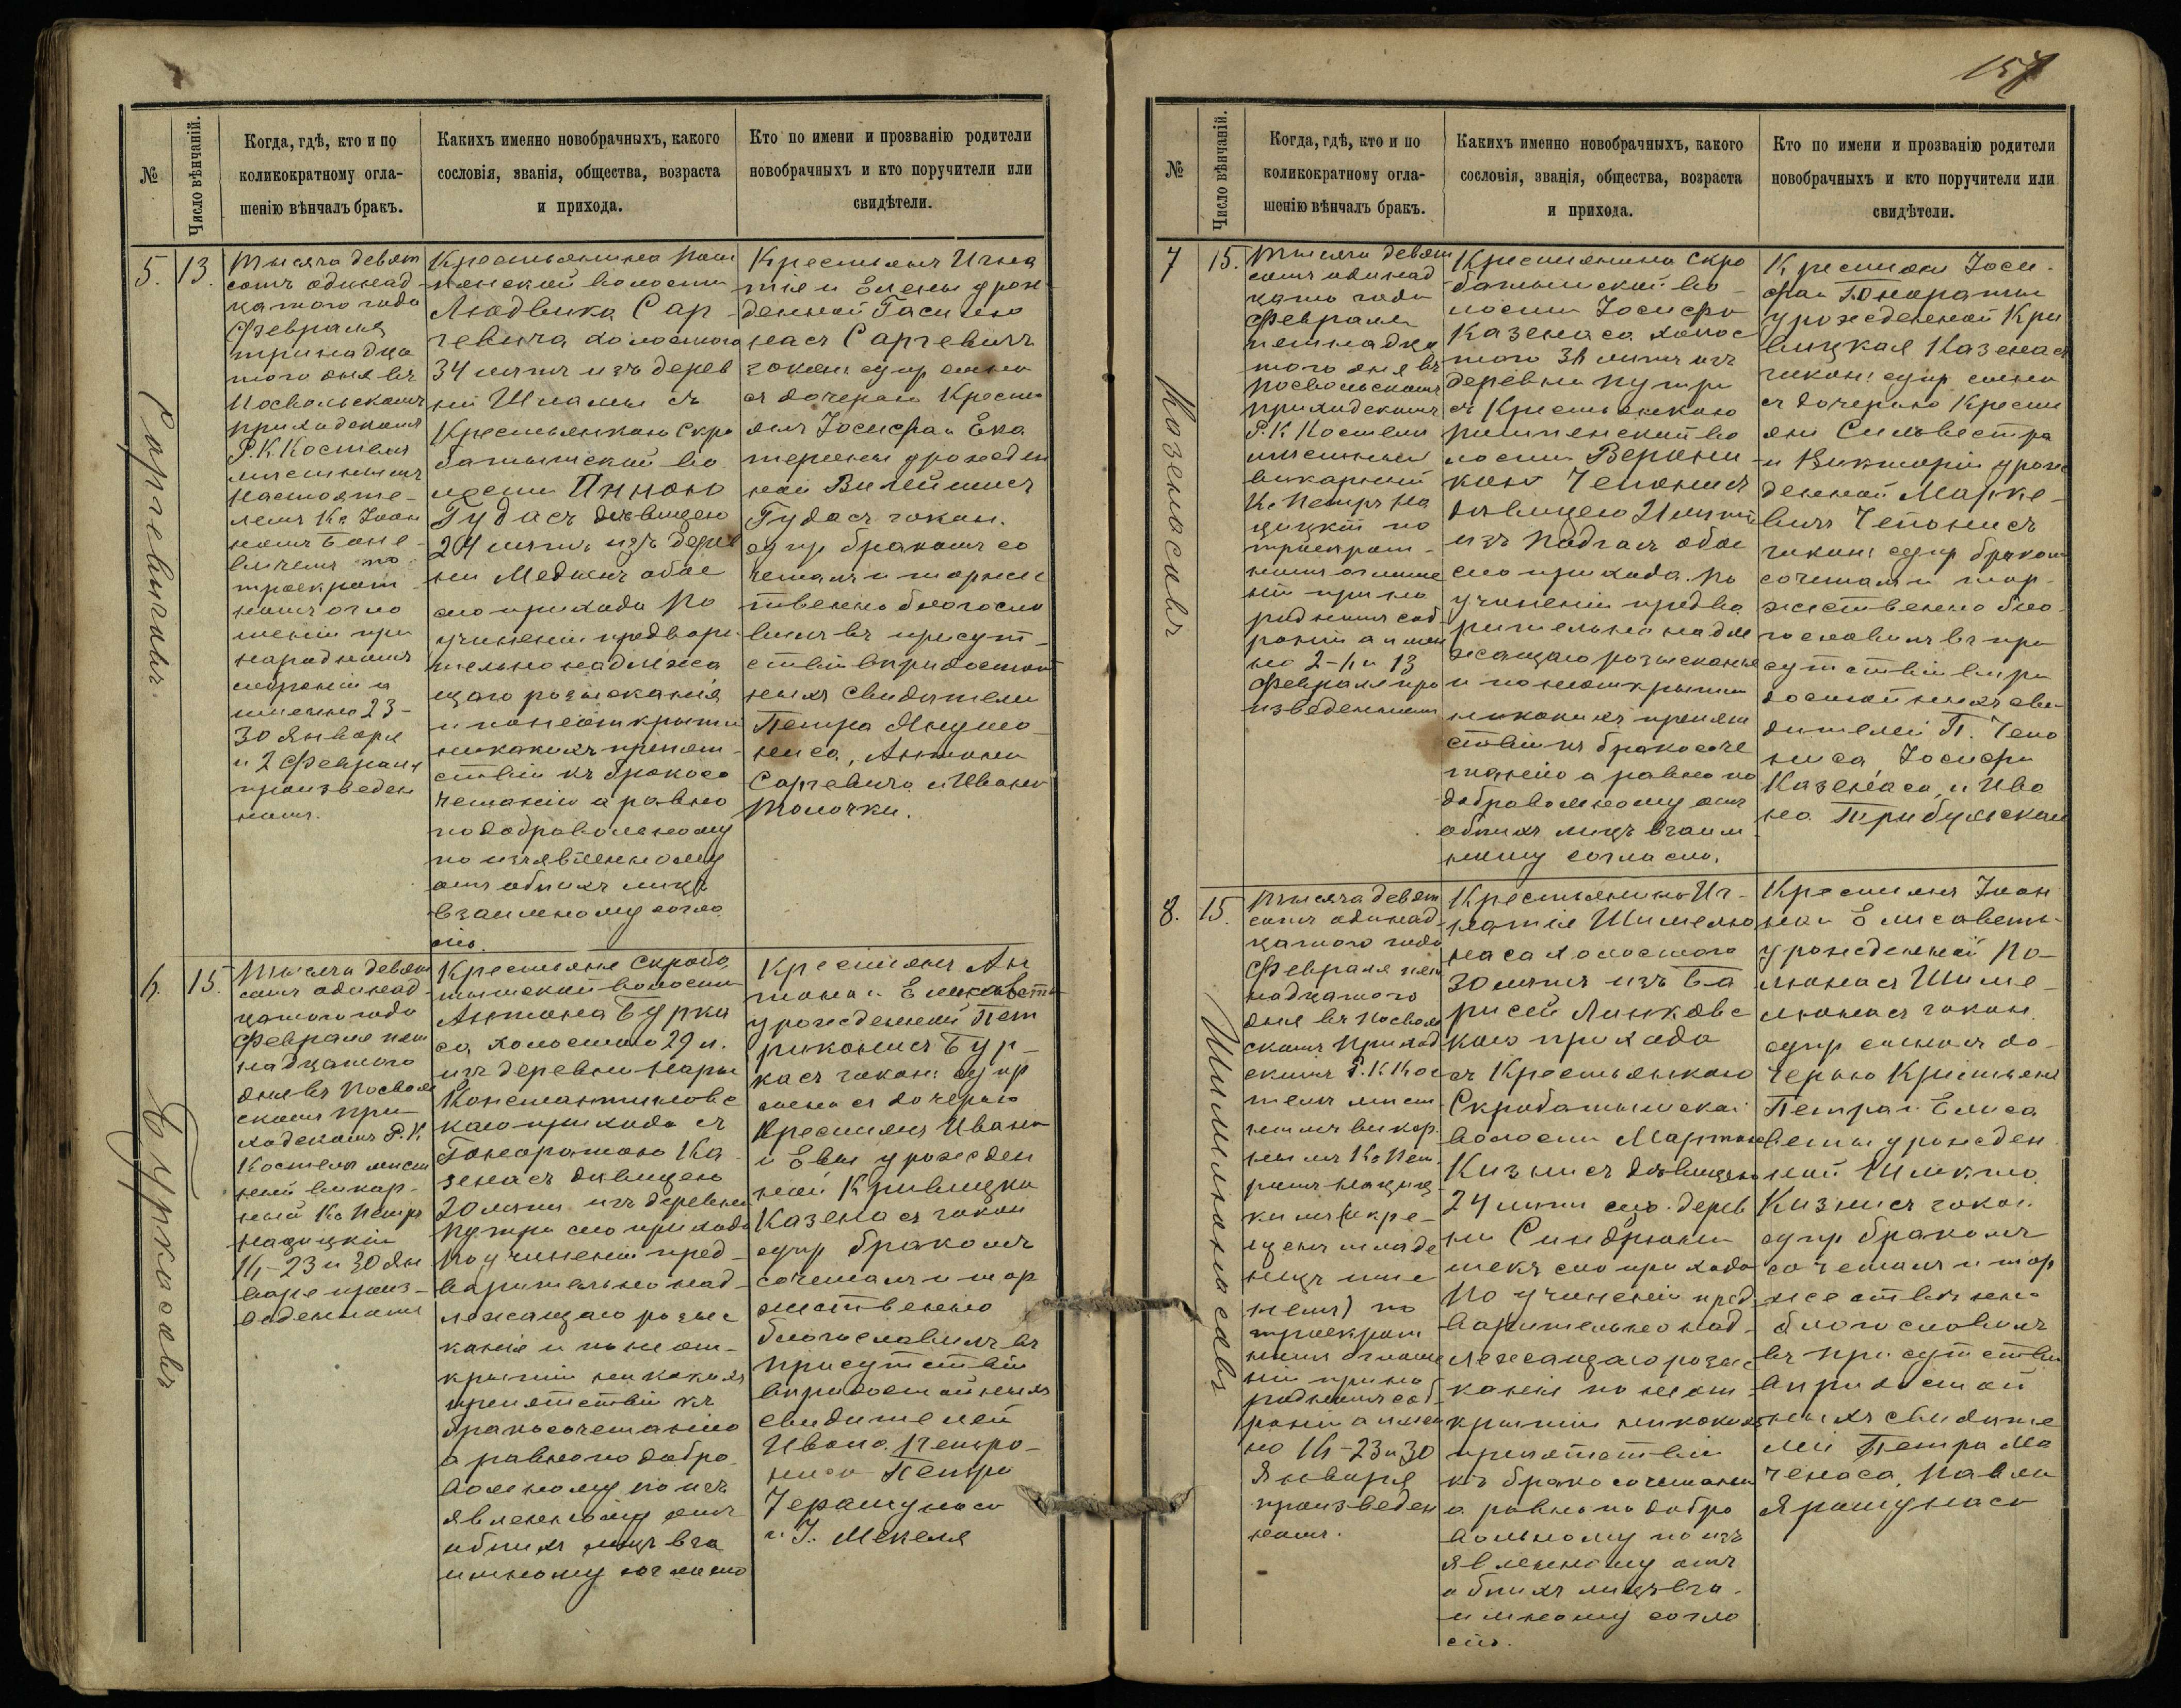 157
№
Число вѣнчаній.
Когда, гдѣ, кто и по
коликократному огла-
шенію вѣнчалъ бракъ.
Какихъ именно новобрачныхъ, какого
сословія, званія, общества, возраста
и прихода.
Кто по имени и прозванію родители
новобрачныхъ и кто поручители или
свидѣтели.
5.
13.
Сарчевичовъ.
Тысяча девят
сотъ одинад
цатого года
Февраля
тринадца
того дня въ
Посвольскомъ
приходскомъ
Р. К. Костелѣ
мѣстнымъ
настояте-
лемъ Кс Іоан
номъ
по
троекрат
номъ огла
шеніи при
народномъ
собраніи а
именно 23-
30 Января
и 2 Февраля
произведен
номъ.
Крестьянина
волости
Людвика Сар
чевича холостого
34 лѣтъ изъ дерев
ни Шламы съ
Крестьянкою Скро
батышской во
лости Анною
Гудасъ дѣвицею
24 лѣтъ изъ дерев
ни обое
его прихода по
учиненіи предвари
тельно надлежа
щаго розысканія
и по неоткрытіи
никакихъ препят
ствій къ бракосо
четанію а равно
по добровольному
по изъявленному
отъ обоихъ лицъ
взаимному согла
сію.
Крестьянъ Игна
тія и Елены урож
денной Гасюлю
насъ Сарчевичъ
закон: супр сына
съ дочерью Крестъ
янъ Іосифа и Ека
терины урожден
ной
Гудасъ закон.
супр бракомъ со
четалъ и торжес
твенно благосло
вилъ въ присут
ствіи
ныхъ свидѣтелей
Петра Янушо
ниса, Антона
Сарчевича и Ивана
Толочки.
6.
15.
Буркасовъ
Тысяча девят
сотъ одинад
цатого года
Февраля пят
надцатого
дня въ Посволь
скомъ при
ходскомъ Р. К
Костелѣ мѣст
ный викар-
ный Кс Петръ
Нацицкій
16-23 и 30 Ян
варя произ-
веденномъ
Крестьяни Скроба
тышской волости
Антона Бурка
са холостого 29 л.
изъ деревни Нары
Константиновс
каго прихода съ
Гоноратою Ка
зенасъ дѣвицею
20 лѣтъ изъ деревни
Путри его прихода
по учиненіи пред-
варительно над-
лежащаго розыс
канія и по неот-
крытіи никакихъ
препятствій къ
бракосочетанію
а равно по добро
вольному по изъ
явленному отъ
обоихъ лицъ вза
имному согласію
Крестьянъ Ан
тона и Елисаветы
урожденной Пет
риконисъ Бур-
касъ закон: супр
сына съ дочерью
Крестьянъ Ивана
и Евы урожден
ной Кривицка
Казенасъ закон
супр бракомъ
сочеталъ и тор
жественно
благословилъ въ
присутствіи
свидѣтелей
Ивана Петро-
ниса Петра
Черашунаса
и І. Мекеля
7
15.
Казенасовъ
Тысяча девят
сотъ одинад
цато года
Февраля
пятнадца
того дня въ
Посвольскомъ
приходскомъ
Р. К Костелѣ
мѣстный
викарный
Кс Петръ На
цицкій по
троекрат-
номъ оглаше
ніи при на
родномъ соб
раніи а имен
но 2-6 и 13
Февраля про
изведенномъ
Крестьянина Скро
батышской во
лости Іосифа
Казенаса холос
того 36 лѣтъ изъ
деревни Путри
съ Крестьянкою
во
лости Верони
кою Чепонисъ
дѣвицею 21 лѣтъ
изъ обое
его прихода. По
учиненіи предва
рительно надле
жащаго розысканія
и по неоткрытіи
никакихъ препят
ствій къ бракосоче
танію а равно по
добровольному отъ
обоихъ лицъ взаим
ному согласію.
Крестьянъ Іоси-
фа и Гонораты
урожденной Кри
вицкая Казенасъ
закон: супр сына
съ дочерью Крестъ
янъ Сильвестра
и Викторіи урож
денной Марке-
вичъ Чепонисъ
закон: супр бракомъ
сочеталъ и тор-
жественно бла-
гословилъ въ при
сутствіи
достойныхъ сви
дѣтелей П. Чепо
ниса, Іосифа
Казенаса, и Ива
на
8.
15.
Шимелюнасовъ
Тысяча девят
сотъ одинад
цатого года
Февраля пят
надцатого
дня въ Посволь
скомъ приход
скомъ Р. К Кос
телѣ мѣст
нымъ викар.
нымъ Кс Пет
ромъ Нациц
кимъ (
младе
нецъ име
немъ) по
троекрат
номъ оглаше
ніи при на
родномъ соб
раніи а имен
но 16-23 и 30
Января
произведен
номъ.
Крестьянина Иг-
натія Шимелю
наса холостого
30 лѣтъ изъ Ба
рисей Линковс
каго прихода
съ Крестьянкою
Скробатышской
волости Мартою
Кизнисъ дѣвицею
24 лѣтъ его. дерев
ни Синдрюни
шекъ его прихода
По учиненіи пред
варительно над-
лежащаго розыс
канія по неот
крытіи никакихъ
препятствій
къ бракосочетанію
а равно по добро
вольному по изъ
явленному отъ
обоихъ лицъ вза-
имному согла
сію.
Крестьянъ Іоан
на и Елисаветы
урожденной По-
люнасъ Шиме-
люнасъ закон.
супр сыномъ до-
черью Крестьянъ
Петра и Елиса
веты урожден
ной
Кизнисъ закон.
супр бракомъ
сочеталъ и тор
жественно
благословилъ
въ присутствіи
ныхъ свидѣте
лей Петра Ма
ченаса, Павла
Ярашунаса